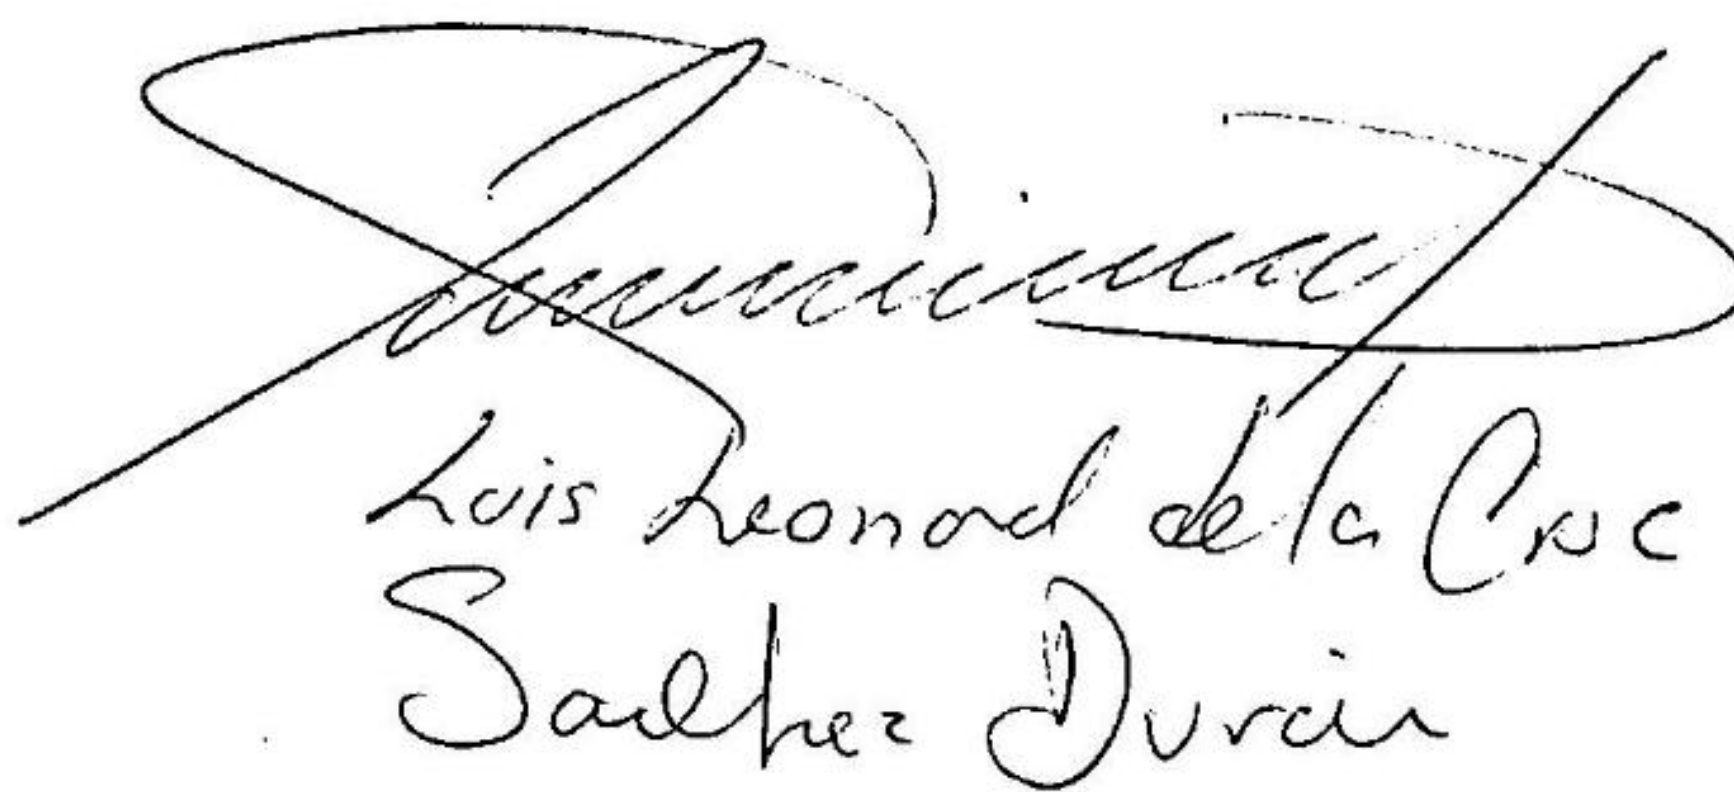 Luis Leonard de la Cruc
Sanchez Durán